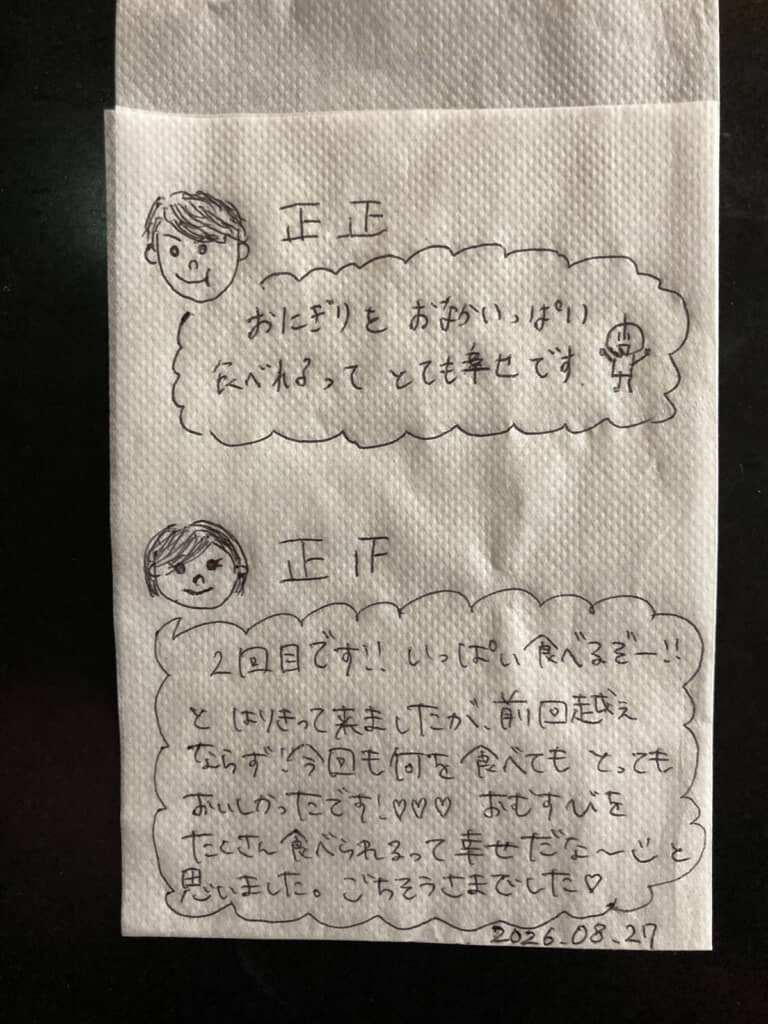 正 正
おにぎりを おなかいっぱい
食べれるって とても幸せです.
正
2回目です!! いっぱい食べるぞー!!
と はりきって来ましたが、前回越え
ならず!今回も何を食べても とっても
おいしかったです!♡♡♡ おむすびを
たくさん食べられるって幸せだな〜 と
思いました。ごちそうさまでした♡
2026.08.27